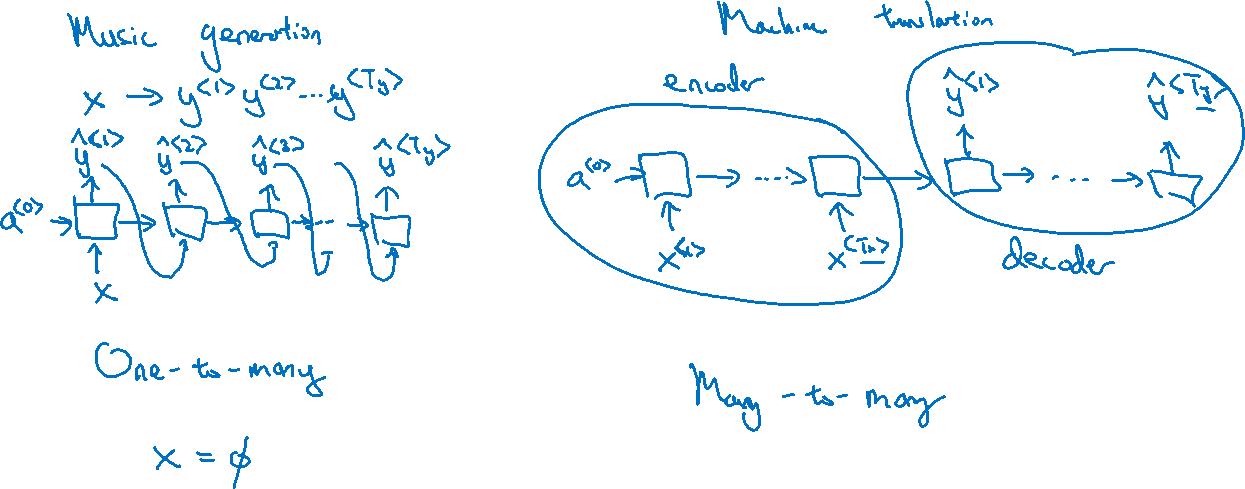 Music generation
x → y<1> y<2> ... y<Ty>
ŷ<1> ŷ<2> ŷ<3> ŷ<Ty>
a<0> → → → ... →
x
One-to-many
x = ϕ
Machine translation
encoder
ŷ<1> ŷ<Ty>
a<0> → → ... → → → ... →
x<1> x<Tx>
decoder
Many-to-many